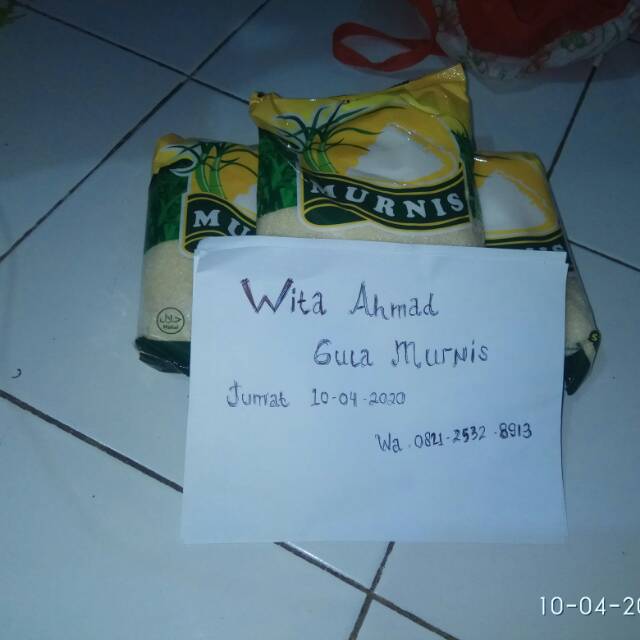 MURNIS
MU
Wita Ahmad
Gula Murnis
Jumat 10-04-2020
Wa. 0821-2532-8913
حلال
Halal
10-04-20